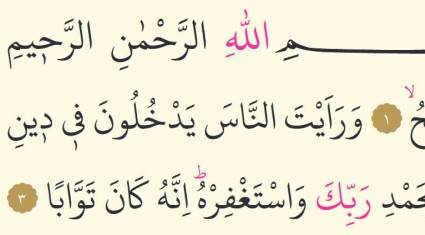 ـمِ اللّٰهِ الرَّحْمٰنِ الرَّح۪يمِ
ـحُۙ ١ وَرَاَيْتَ النَّاسَ يَدْخُلُونَ ف۪ي د۪ينِ
ـحَمْدِ رَبِّكَ وَاسْتَغْفِرْهُۜ اِنَّهُ كَانَ تَوَّابًا ٣